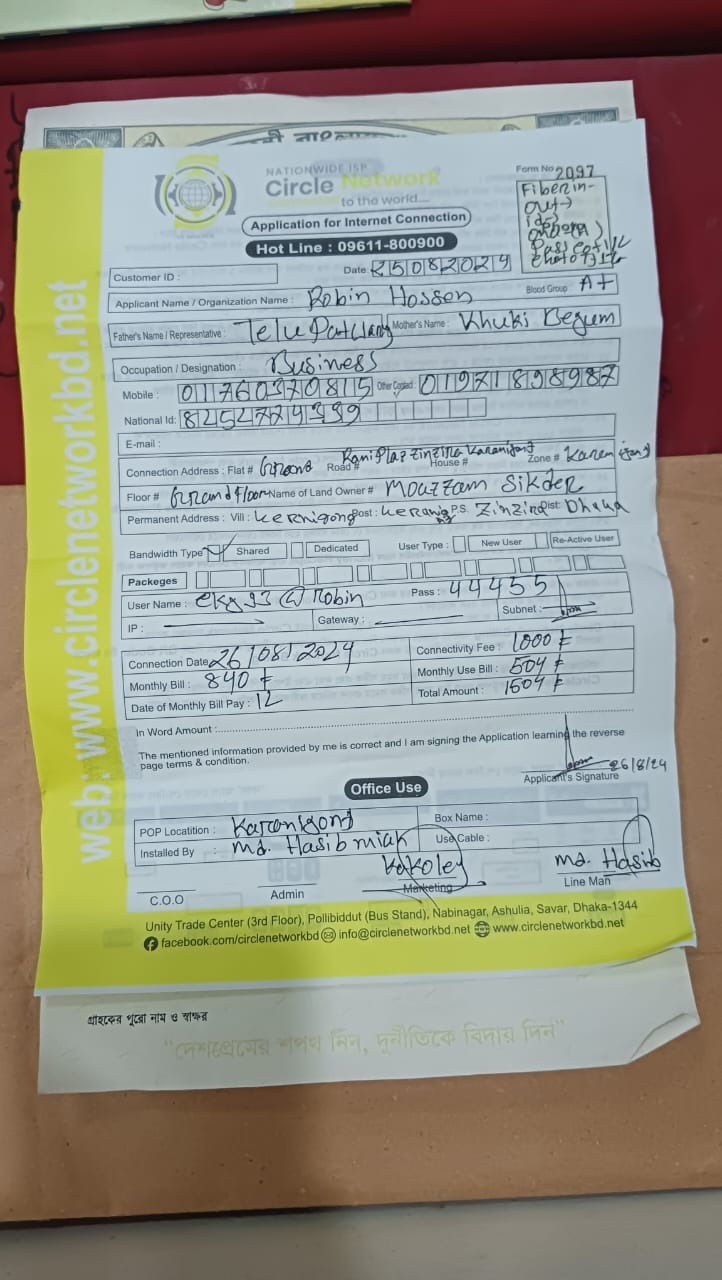 NATIONWIDE ISP
Circle Network
to the world....
Application for Internet Connection
Hot Line : 09611-800900
Form No 2097
Fiber in-
out→
Customer ID :
Date: 25082024
Applicant Name / Organization Name : Robin Hossen Blood Group A+
Father's Name / Representative : Telu Mother's Name : Khuki Begum
Occupation / Designation : Business
Mobile : 01760370815 Other Contact : 01971898987
National Id: 8454774339
E-mail :
Connection Address : Flat # Road # Zinzira Karanigonj House # Zone #
Floor # Grand Floor Name of Land Owner # Moazzam Sikder
Permanent Address : Vill : Kernigong Post : P.S. Dist: Dhaka
Bandwidth Type Shared Dedicated User Type : New User Re-Active User
Packeges
User Name : @ Robin Pass : 44455
IP : Gateway : Subnet :
Connection Date 26/08/2024 Connectivity Fee : 1000 ৳
Monthly Bill : 840 ৳ Monthly Use Bill : 504 ৳
Date of Monthly Bill Pay : 12 Total Amount : 1504 ৳
In Word Amount :
The mentioned information provided by me is correct and I am signing the Application learning the reverse
page terms & condition.
26/8/24
Applicant's Signature
Office Use
POP Locatition : Karanigonj Box Name :
Installed By : Md. Hasib miah Use Cable :
Kakoley Md. Hasib
C.O.O Admin Marketing Line Man
Unity Trade Center (3rd Floor), Pollibiddut (Bus Stand), Nabinagar, Ashulia, Savar, Dhaka-1344
facebook.com/circlenetworkbd info@circlenetworkbd.net www.circlenetworkbd.net
web: www.circlenetworkbd.net
গ্রাহকের পুরো নাম ও স্বাক্ষর
"দেশপ্রেমের শপথ নিন, দুর্নীতিকে বিদায় দিন"